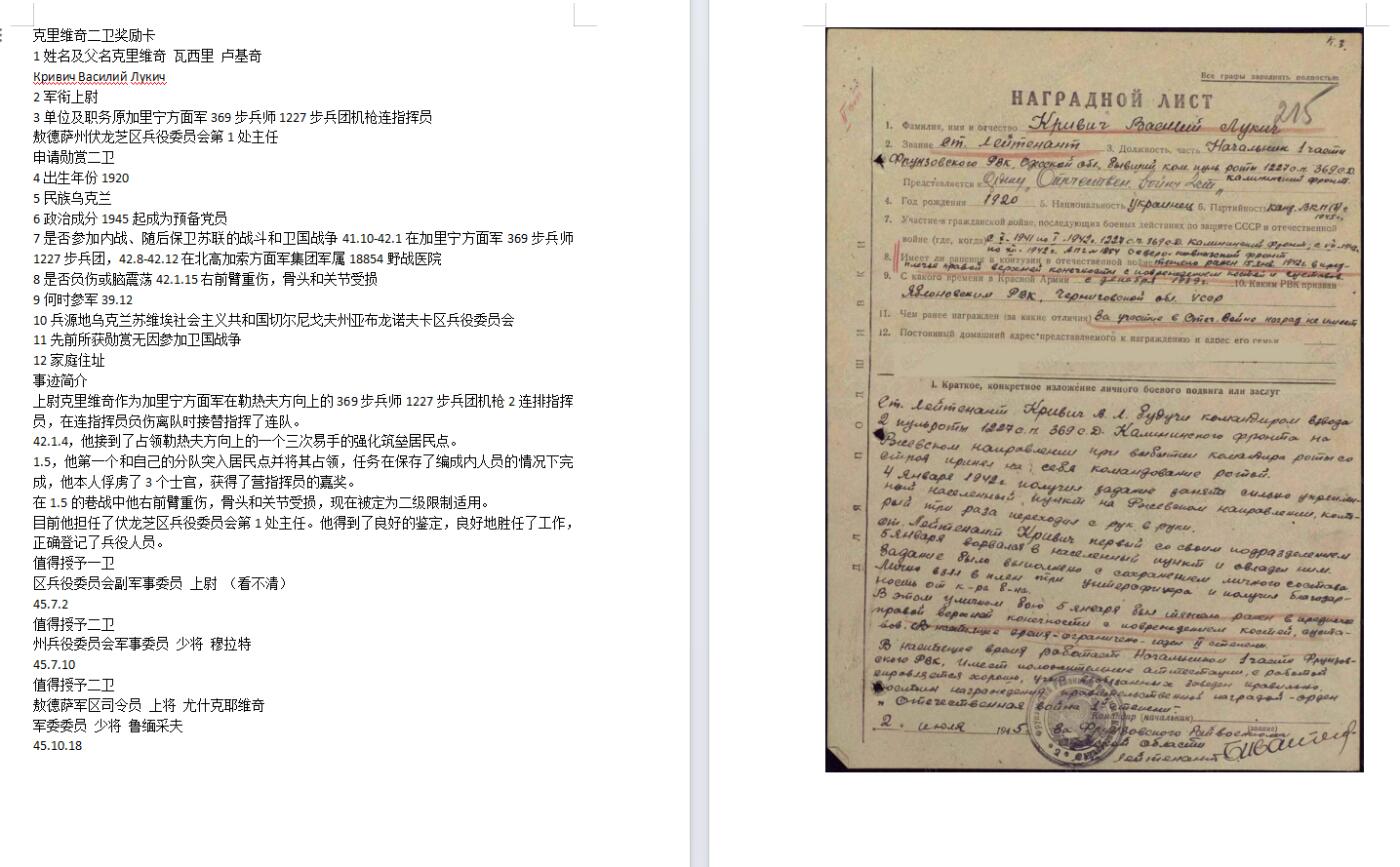 克里维奇二卫奖励卡
1 姓名及父名克里维奇 瓦西里 卢基奇
Кривич Василий Лукич
2 军衔上尉
3 单位及职务原加里宁方面军 369 步兵师 1227 步兵团机枪连指挥员
敖德萨州伏龙芝区兵役委员会第 1 处主任
申请勋赏二卫
4 出生年份 1920
5 民族乌克兰
6 政治成分 1945 起成为预备党员
7 是否参加内战、随后保卫苏联的战斗和卫国战争 41.10-42.1 在加里宁方面军 369 步兵师
1227 步兵团，42.8-42.12 在北高加索方面军集团军属 18854 野战医院
8 是否负伤或脑震荡 42.1.15 右前臂重伤，骨头和关节受损
9 何时参军 39.12
10 兵源地乌克兰苏维埃社会主义共和国切尔尼戈夫州亚布龙诺夫卡区兵役委员会
11 先前所获勋赏无因参加卫国战争
12 家庭住址
事迹简介
上尉克里维奇作为加里宁方面军在勒热夫方向上的 369 步兵师 1227 步兵团机枪 2 连排指挥
员，在连指挥员负伤离队时接替指挥了连队。
42.1.4，他接到了占领勒热夫方向上的一个三次易手的强化筑垒居民点。
1.5，他第一个和自己的分队突入居民点并将其占领，任务在保存了编成内人员的情况下完
成，他本人俘虏了 3 个士官，获得了营指挥员的嘉奖。
在 1.5 的巷战中他右前臂重伤，骨头和关节受损，现在被定为二级限制适用。
目前他担任了伏龙芝区兵役委员会第 1 处主任。他得到了良好的鉴定，良好地胜任了工作，
正确登记了兵役人员。
值得授予一卫
区兵役委员会副军事委员 上尉 （看不清）
45.7.2
值得授予二卫
州兵役委员会军事委员 少将 穆拉特
45.7.10
值得授予二卫
敖德萨军区司令员 上将 尤什克耶维奇
军委委员 少将 鲁缅采夫
45.10.18
Все графы заполнять полностью
НАГРАДНОЙ ЛИСТ
215
1. Фамилия, имя и отчество Кривич Василий Лукич
2. Звание ст. Лейтенант 3. Должность, часть Начальник 1 части
Фрунзовского РВК, Одесской обл, бывший ком. пуль роты 1227 с.п. 369 с.д.
Калининский фронт.
Представляется к Ордену "Отечествен. войны 2 ст"
4. Год рождения 1920 5. Национальность украинец 6. Партийность канд. ВКП(б) с
1945г.
7. Участие в гражданской войне, последующих боевых действиях по защите СССР и отечественной
войне (где, когда) с X-1941 по I-1942г. 1227 с.п. 369 с.д. Калининский фронт;
8. Имеет ли ранения и контузии в отечественной войне тяжело ранен
правой верхней конечности с повреждением костей и суставов
9. С какого времени в Красной Армии с декабря 1939г. 10. Каким РВК призван
Яблоновским РВК, Черниговской обл. УССР
11. Чем ранее награжден (за какие отличия) За участие в Отеч. Войне наград не имеет
12. Постоянный домашний адрес представляемого к награждению и адрес его семьи
ДЛЯ ПОДШИВКИ
I. Краткое, конкретное изложение личного боевого подвига или заслуг
Ст. Лейтенант Кривич В. Л. будучи командиром взвода
2 пульроты 1227 с.п. 369 с.д. Калининского фронта на
Ржевском направлении при выбытии командира роты из
строя принял на себя командование ротой.
4 января 1942г получил задание занять сильно укреплен-
ный населенный пункт на Ржевском направлении, кото-
рый три раза переходил с рук в руки.
Ст. Лейтенант Кривич первый со своим подразделением
5 января ворвался в населенный пункт и овладел им.
Задание было выполнено с сохранением личного состава
Лично взял в плен три унтерофицера и получил благодар-
ность от к-ра б-на.
В этом уличном бою 5 января был тяжело ранен в предплечье
правой верхней конечности с повреждением костей, суста-
вов. В настоящее время - ограничено-годен II степени.
В настоящее время работает Начальником 1 части Фрунзов-
ского РВК, Имеет положительные аттестации, с работой
справляется хорошо, учет военнообязанных заведен правильно,
награждения правительственной наградой - орден
"Отечественная война 1й степени".
Командир (начальник)
(звание)
2. июля 1945. Фрунзовского Райвоенкома
области
лейтенант